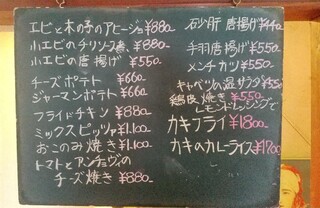 エビと木の子のアヒージョ ¥880-
小エビのチリソース煮 ¥880-
小エビの唐揚げ ¥550-
チーズポテト ¥660
ジャーマンポテト ¥660
フライドチキン ¥880
ミックスピッツァ ¥1,100
おこのみ焼き ¥1,100
トマトとアンチョヴィの
チーズ焼き ¥880-
砂肝 唐揚げ ¥440
手羽唐揚げ ¥550
メンチカツ ¥550-
キャベツの温サラダ ¥550
鶏皮焼き ¥550-
レモンドレッシングで
カキフライ ¥1800-
カキのカレーライス ¥1700